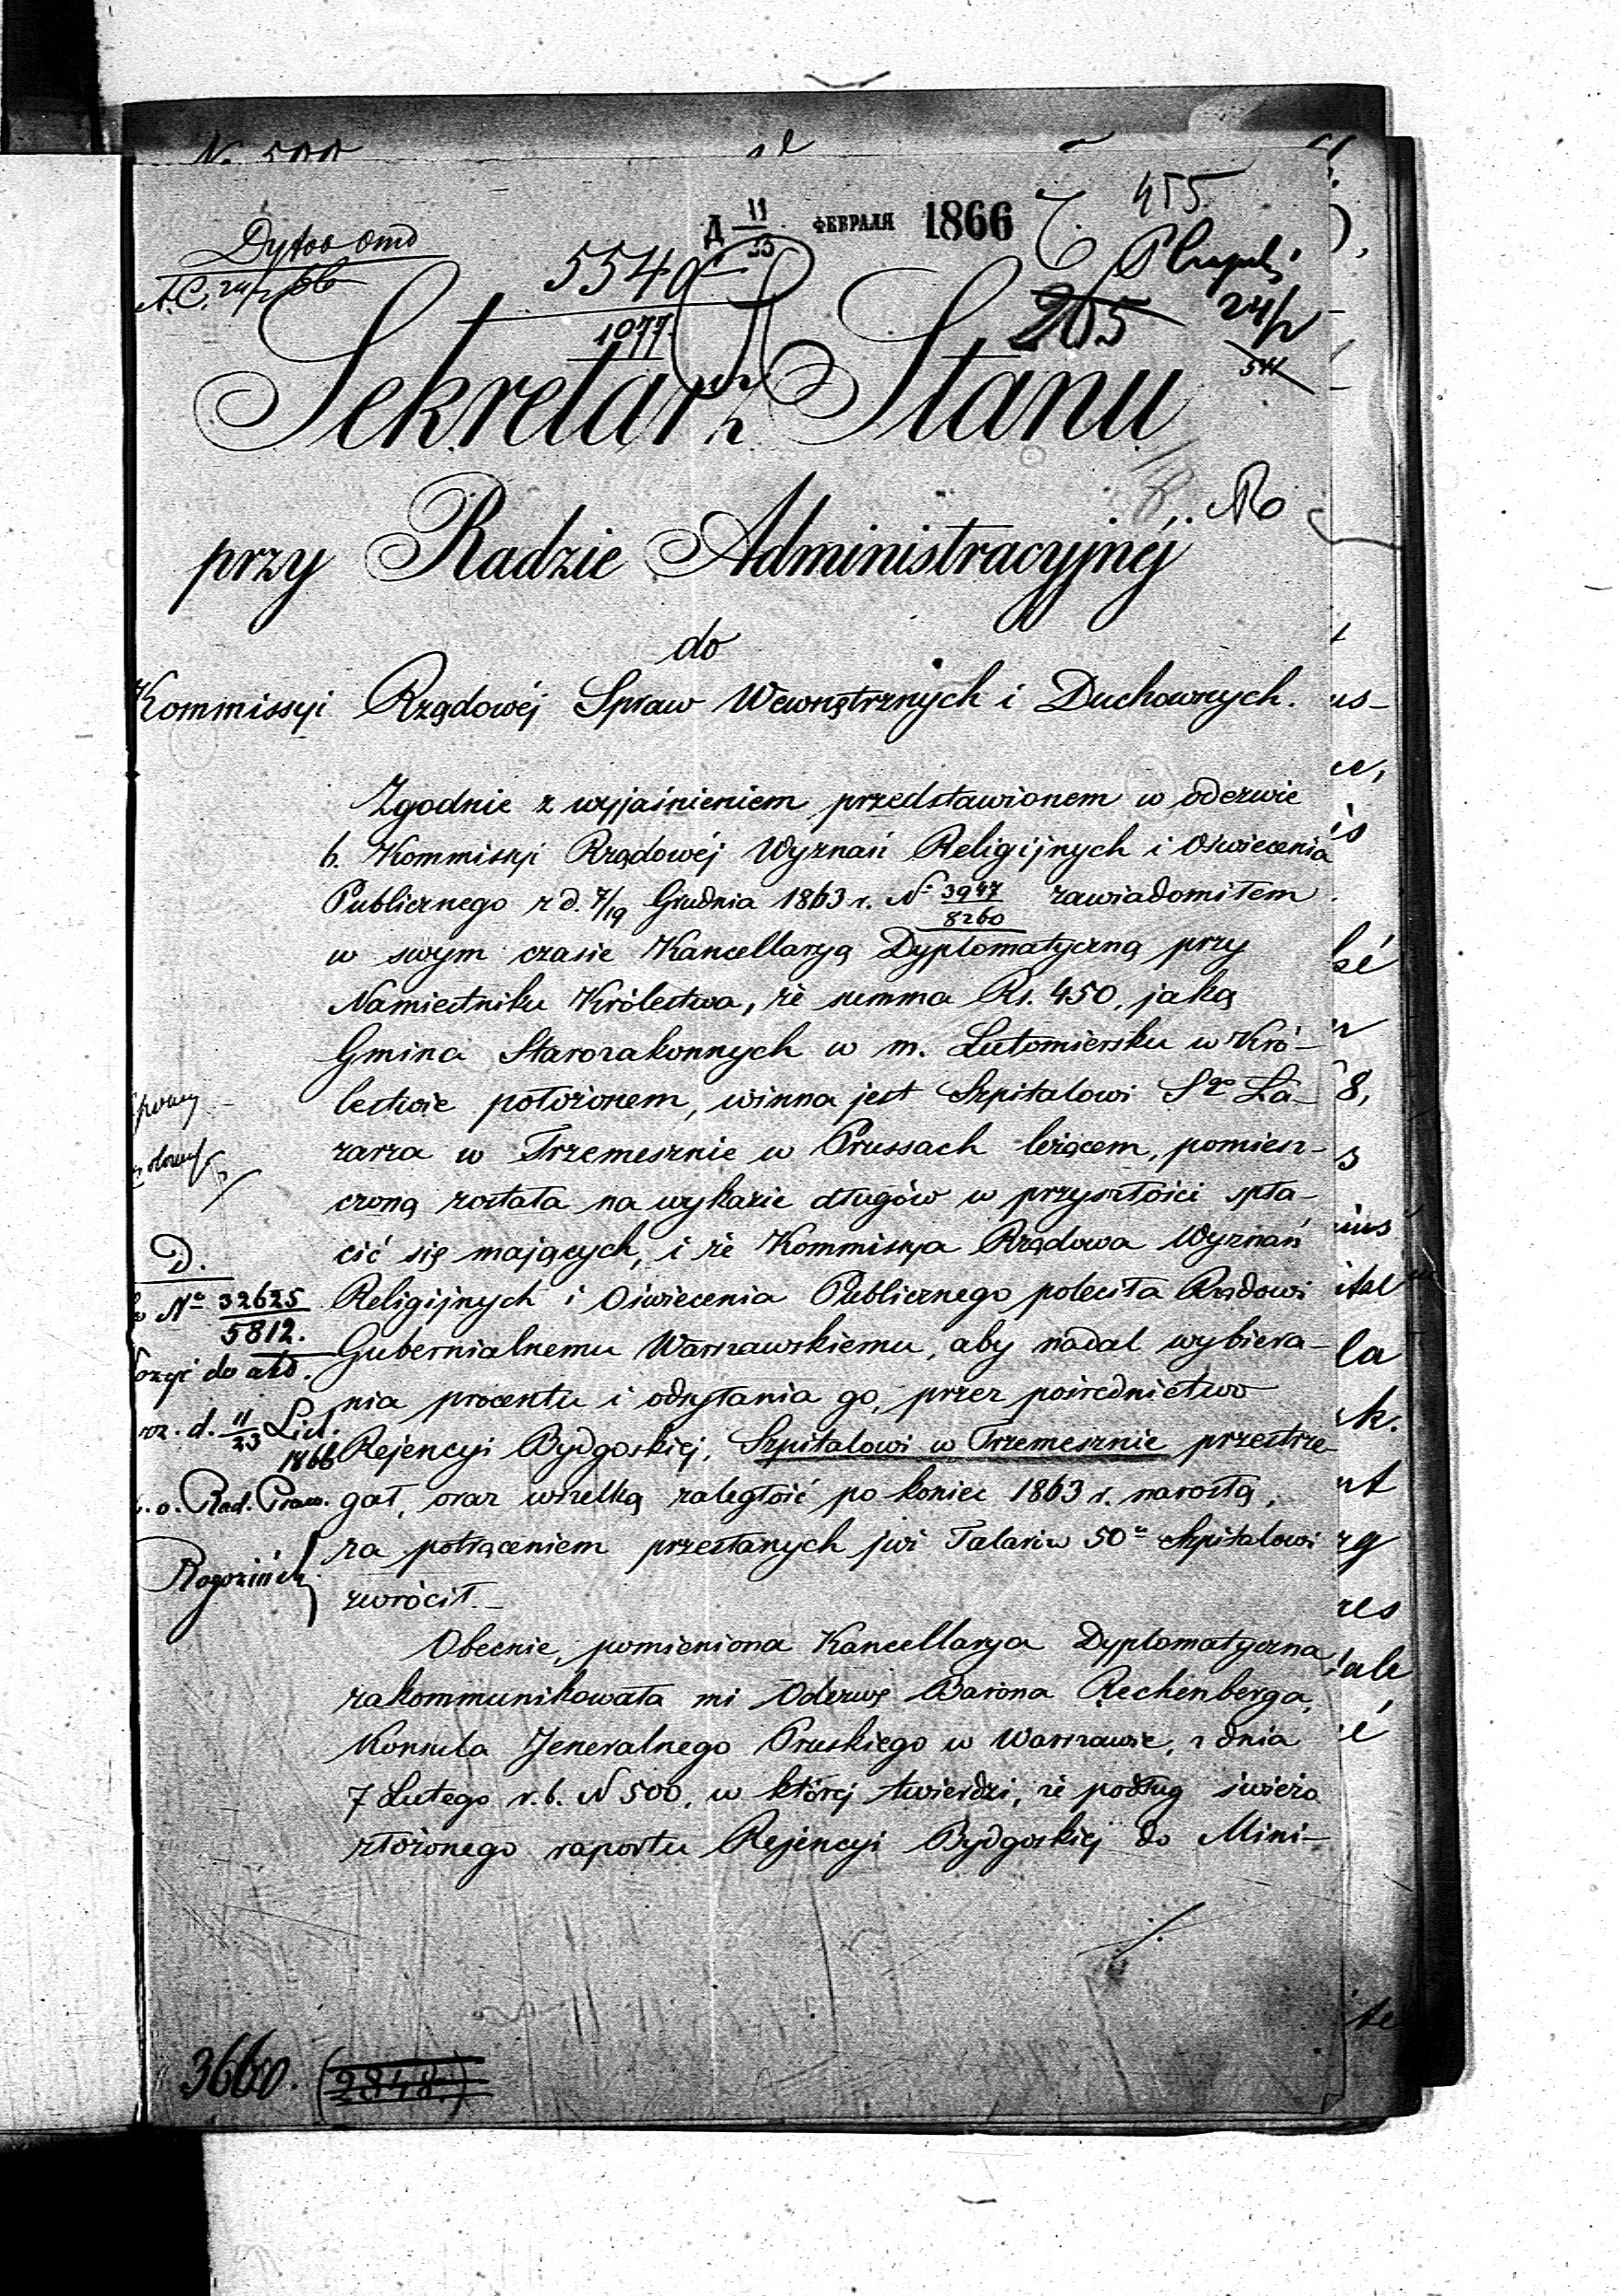 Д 11/23 ФЕВРАЛЯ 1866
455
5540
1077
205
24/2
Sekretarz Stanu
przy Radzie Administracyjnéj
do
Kommissyi Rządowéj Spraw Wewnętrznych i Duchownych.
Zgodnie z wyjaśnieniem przedstawionem w odezwie
b. Kommissyi Rządowéj Wyznań Religijnych i Oświecenia
Publicznego z d. 7/19 Grudnia 1863 r. № 3947/8260 zawiadomiłem
w swym czasie Kancellaryą Dyplomatyczną przy
Namiestniku Królestwa, że summa Rs. 450, jaką
Gmina Starozakonnych w m. Lutomiersku w Kró-
lestwie położonem, winna jest Szpitalowi Sgo Ła-
zarza w Trzemesznie w Prussach leżącem, pomiesz-
czoną została na wykazie długów w przyszłości spła-
cić się mających, i że Kommissya Rządowa Wyznań
Religijnych i Oświecenia Publicznego poleciła Rządowi
Gubernialnemu Warszawskiemu, aby nadal wybiera-
nia procentu i odsyłania go, przez pośrednictwo
Rejencyi Bydgoskiej, Szpitalowi w Trzemesznie przestrze-
gał, oraz wszelką zaległość po koniec 1863 r. narosłą,
za potrąceniem przesłanych już Talarów 50 Szpitalowi
zwrócił.-
Obecnie, pomieniona Kancellarya Dyplomatyczna
zakommunikowała mi Odezwę Barona Rechenberga,
Konsula Jeneralnego Pruskiego w Warszawie, z dnia
7 Lutego r. b. N 500, w której twierdzi, że podług świeżo
złożonego raportu Rejencyi Bydgoskiej do Mini-
D.
№ 32625
5812.
do akt.
d. 11/23 Lut.
1866
o. Rad. Praw.
Rogoziński
3660. (2848.)